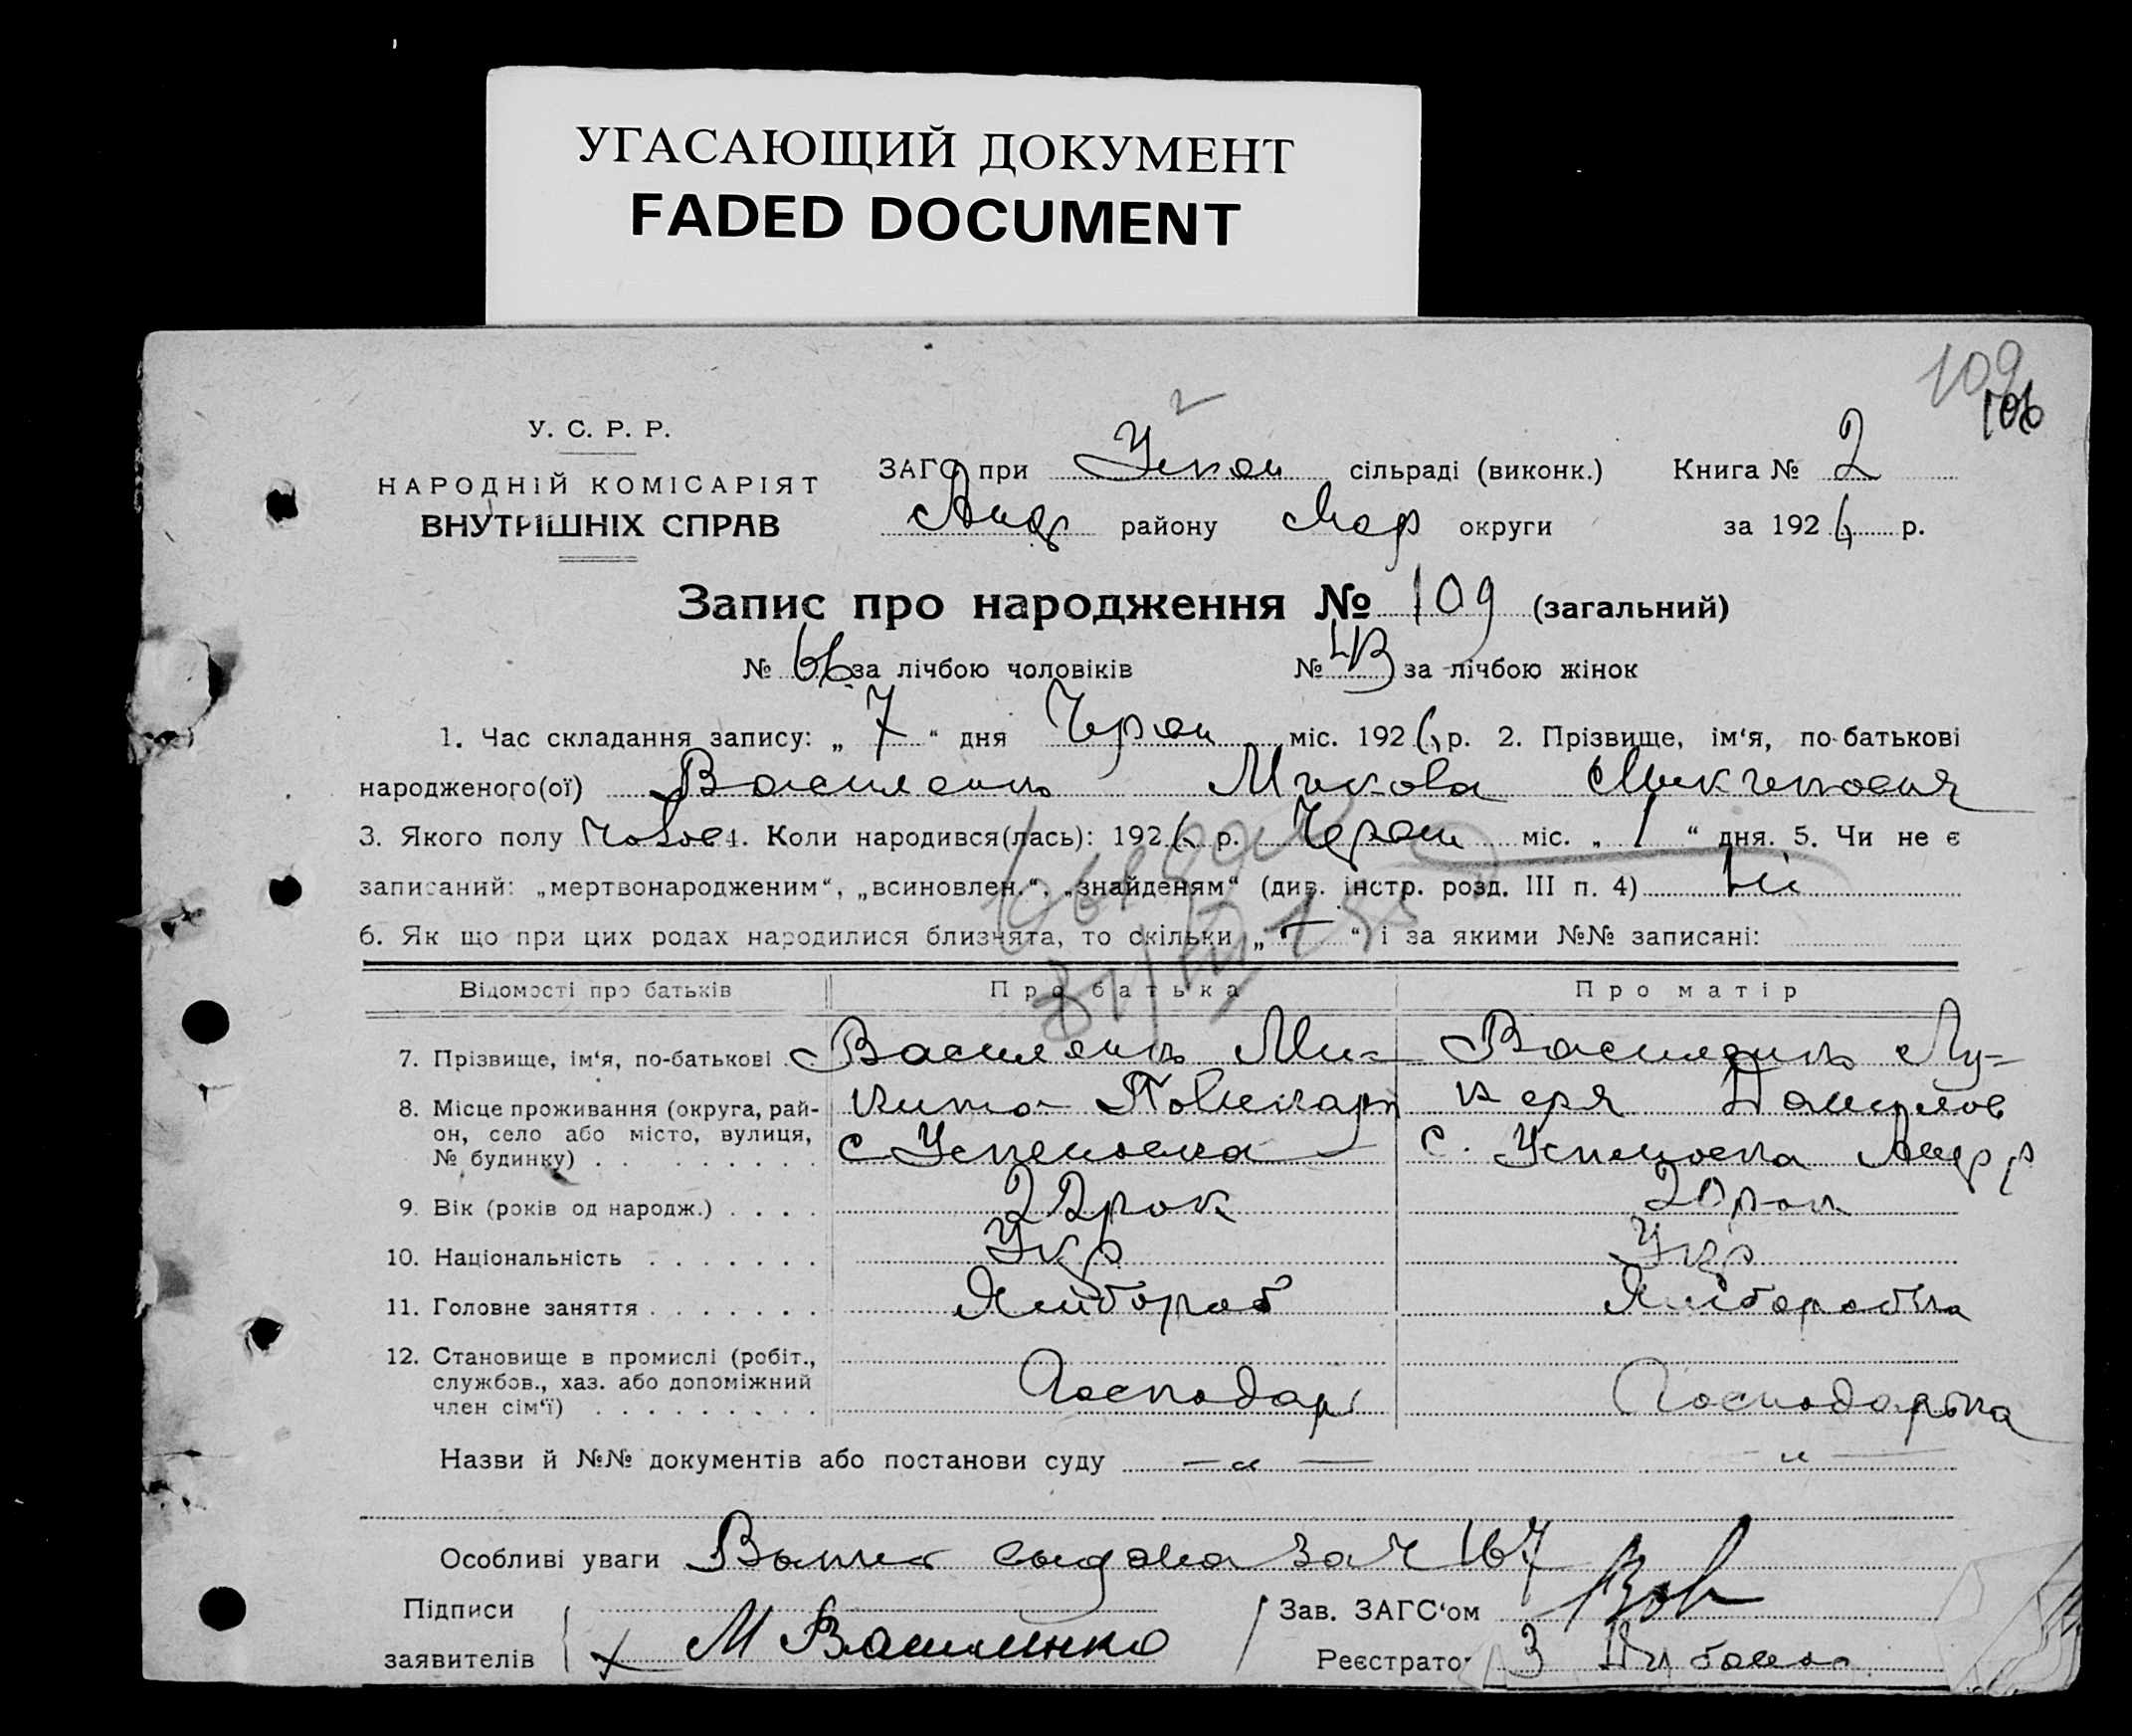 УГАСАЮЩИЙ ДОКУМЕНТ
FADED DOCUMENT
109
106
У. С. Р. Р.
НАРОДНІЙ КОМІСАРІЯТ
ВНУТРІШНІХ СПРАВ
ЗАГС при Успен сільраді (виконк.) Книга № 2
Андр району Мар округи за 1926 р.
Запис про народження № 109 (загальний)
№ 66 за лічбою чоловіків № 43 за лічбою жінок
1. Час складання запису: „ 7 “ дня Червн міс. 1926 р. 2. Прізвище, ім‘я, по-батькові
народженого(ої) Василенко Микола Микитович
3. Якого полу Чолов 4. Коли народився(лась): 1926 р. Червн міс. „ 1 “ дня. 5. Чи не є
записаний: „мертвонародженим“, „всиновлен.“, „знайденям“ (див. інстр. розд. III п. 4) Ні
6. Як що при цих родах народилися близнята, то скільки „ “ і за якими №№ записані:
Відомості про батьків Про батька Про матір
7. Прізвище, ім‘я, по-батькові . . Василенко Ми- Василенко Лу-
8. Місце проживання (округа, рай- кита Полікарп керя Данилов
он, село або місто, вулиця, с Успеновка с. Успеновка Андр р
№ будинку) . . . . . . . . .
9. Вік (років од народж.) . . . . 22 рок 20 рок
10. Національність . . . . . . . Укр Укр
11. Головне заняття . . . . . . . Хлібороб Хліборобка
12. Становище в промислі (робіт.,
службов., хаз. або допоміжний Господар Господарка
член сім‘ї) . . . . . . . . .
Назви й №№ документів або постанови суду — „ — „ —
Особливі уваги видана за ч 167
Підписи Зав. ЗАГС‘ом
заявителів М Василенко Реєстратор